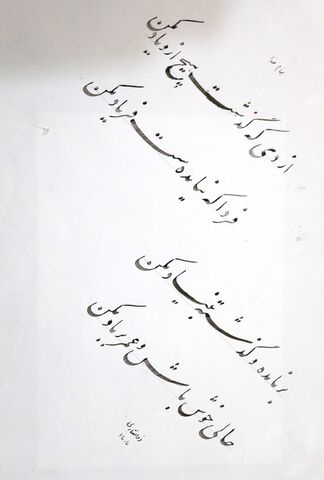 از دی که گذشت هیچ ازو یاد مکن
فردا که نیامده ست فریاد مکن
بر نامده و گذشته بنیاد مکن
حالی خوش باش و عمر بر باد مکن